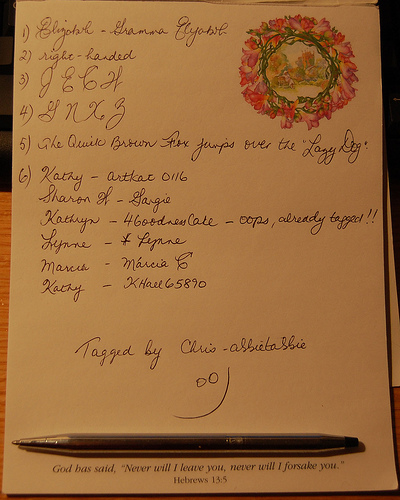 1) Elizabeth - Gramma Elyabeth
2) right-handed
3) J E C H
4) G N X Z
5) The Quick Brown Fox jumps over the "Lazy Dog".
6) Kathy - artkat 0116
Sharon H - Gargie
Kathryn - 4GoodnessCake - oops, already tagged!!
Lynne - * Lynne
Marcia - Márcia C
Kathy - KHall65890
Tagged by Chris - abbietabbie
God has said, "Never will I leave you, never will I forsake you."
Hebrews 13:5